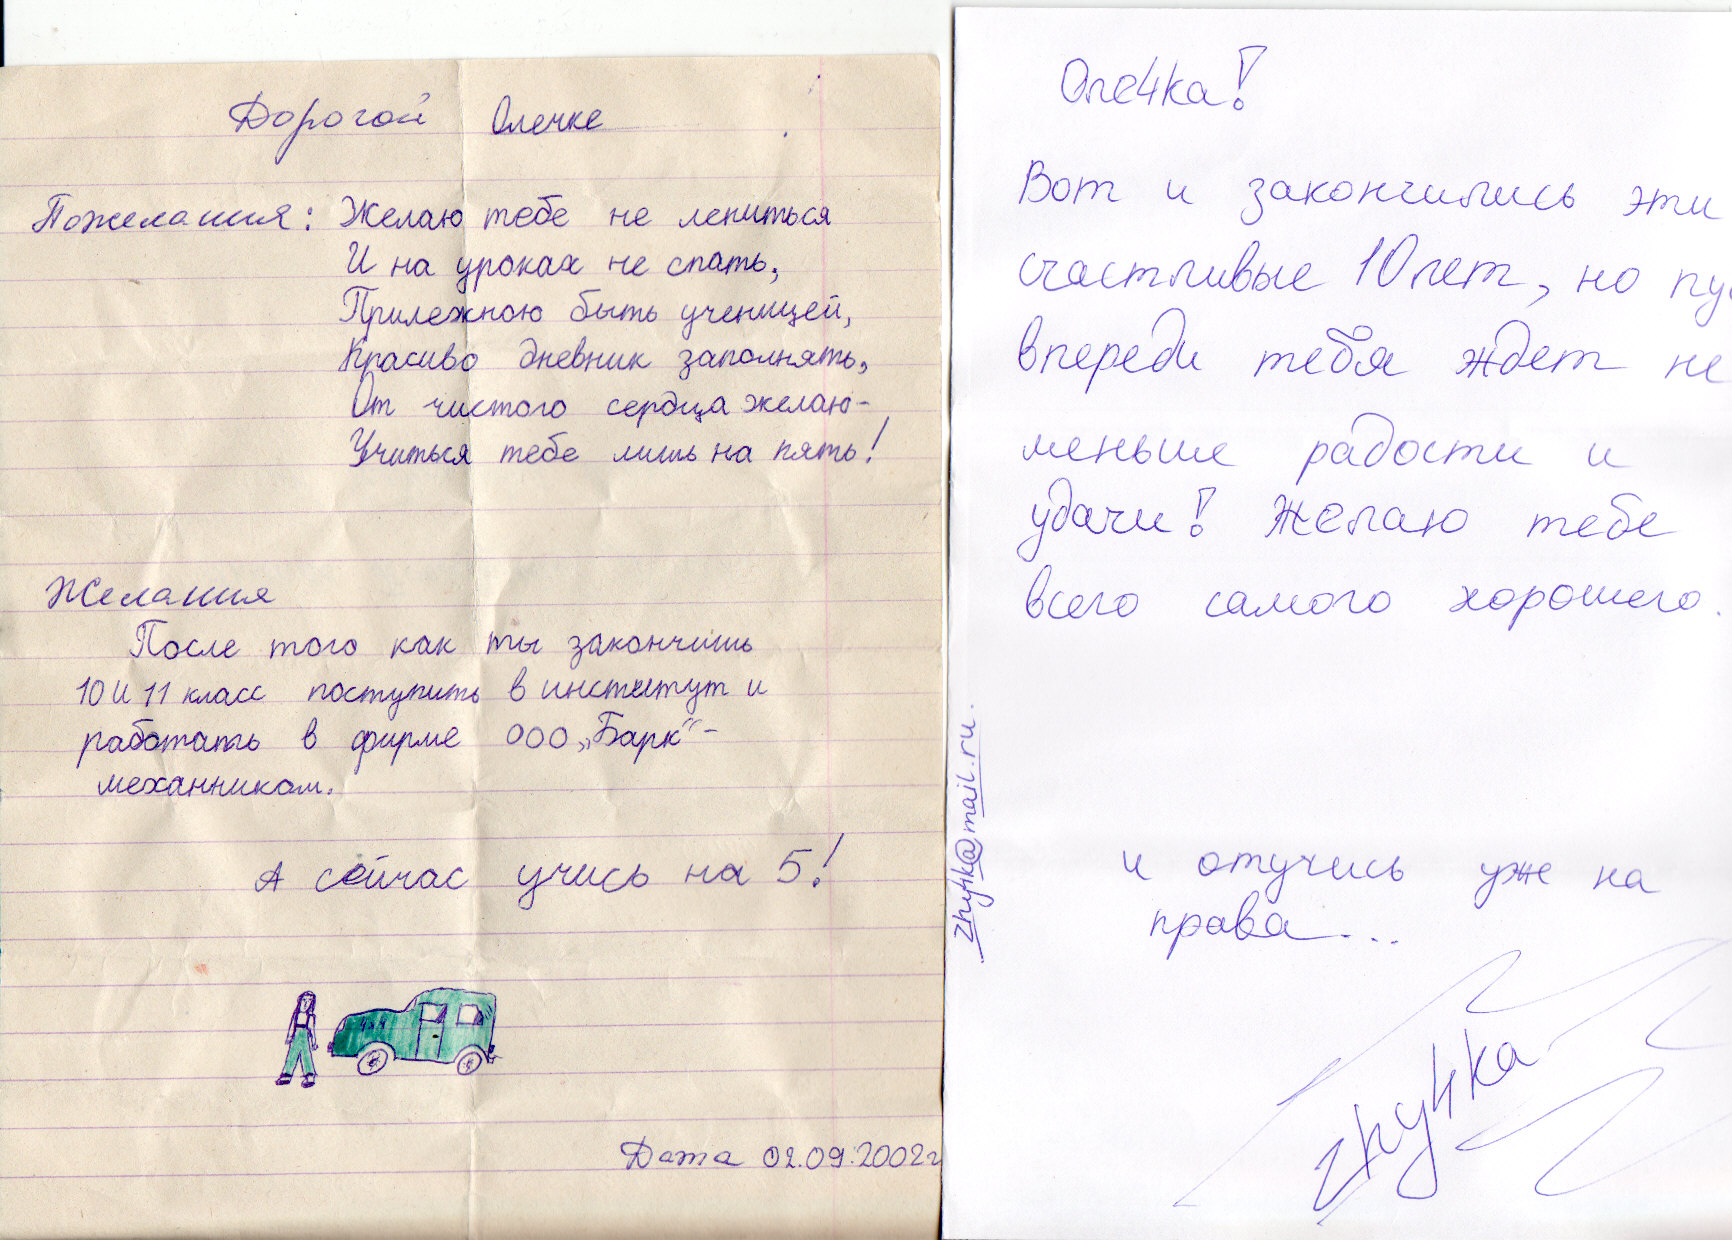 Дорогой Олечке
Пожелания: Желаю тебе не лениться
И на уроках не спать,
Прилежною быть ученицей,
Красиво дневник заполнять,
От чистого сердца желаю-
Учиться тебе лишь на пять!
Желания
После того как ты закончишь
10 и 11 класс поступить в институт и
работать в фирме ООО „Барк“-
механником.
А сейчас учись на 5!
4x4
Дата 02.09.2002г
Оле4ка!
Вот и закончились эти
счастливые 10 лет, но пус
впереди тебя ждет не
меньше радости и
удачи! Желаю тебе
всего самого хорошего.
и отучись уже на
права...
zhy4ka
zhy4ka@mail.ru.